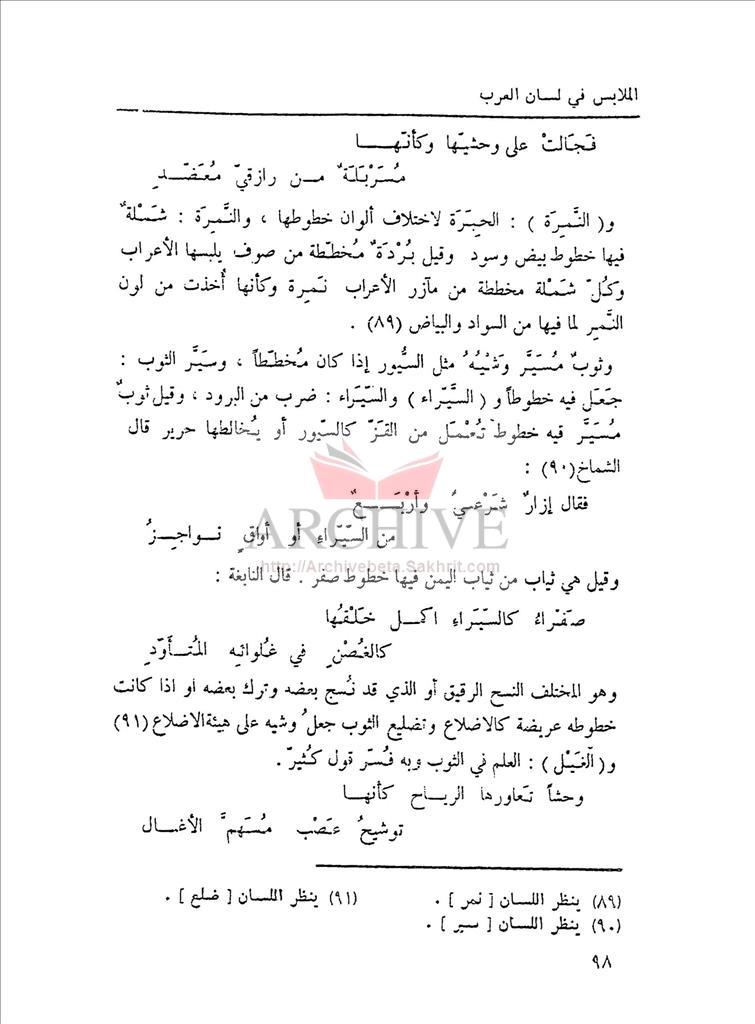 الملابس في لسان العرب
فَجَالتْ على وحشيّها وكأنّهـــا
مُسَرْبَلَةٌ مــن رازقيّ مُعَضّــدٍ
و( النَّمِرَة ) : الحِبَرَة لاختلاف ألوان خطوطها ، والنَّمِرَة : شَمْلةٌ
فيها خطوط بيض وسود وقيل بُرْدَةٌ مُخطّطة من صوف يلبسها الأعراب
وكُلّ شَمْلة مخططة من مآزر الأعراب نَمِرة وكأنها أُخذت من لون
النَّمِر لما فيها من السواد والبياض (٨٩) .
وثوبٌ مُسَيَّر وَشْيُهُ مثل السيُّور إذا كان مُخططاً ، وسيَّر الثوب :
جَعَل فيه خطوطاً و ( السيَّراء ) والسِّيَراء : ضرب من البرود ، وقيل ثوبٌ
مُسَيَّر فيه خطوط تُعْمَل من القزّ كالسّيور أو يُخالطها حرير قال
الشماخ(٩٠) :
فقال إزارٌ شَرْعبيٌّ وأرْبَـــعٌ
من السّيّراءِ أو أواقٍ نــواجِــزُ
ARCHIVE
http://Archivebeta.Sakhrit.com
وقيل هي ثياب من ثياب اليمن فيها خطوط صفر . قال النابغة :
صَفْراءُ كالسّيَراءِ اكمــل خَلْقُها
كالغُصْنِ في غُلوائه المُتــأَوّدِ
وهو المختلف النسج الرقيق أو الذي قد نُسج بعضه وترك بعضه او اذا كانت
خطوطه عريضة كالاضلاع وتضليع الثوب جعلُ وشيه على هيئة الاضلاع (٩١)
و( الغَيْل ) : العلم في الثوب وبه فُسّر قول كُثيرّ .
وحشاً تَعاورها الريــاح كأنهــا
توشيحُ عَصْب مُسَهمَّ الأغيــال
(٨٩) ينظر اللسان [ نمر ] .
(٩١) ينظر اللسان [ ضلع ] .
(٩٠) ينظر اللسان [ سير ] .
٩٨